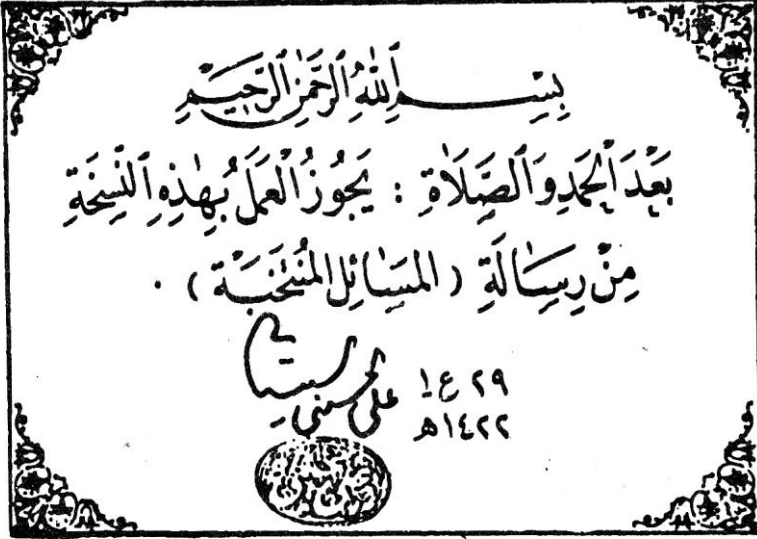 بِسْمِ ٱللّٰهِ ٱلرَّحْمٰنِ ٱلرَّحِيمِ
بَعْدَ ٱلْحَمْدِ وَٱلصَّلَاةِ : يَجُوزُ ٱلْعَمَلُ بِهٰذِهِ ٱلنُّسْخَةِ
مِنْ رِسَالَةِ ( المَسَائِلِ المُنْتَخَبَةِ ) .
علي الحسيني السيستاني
٢٩ ع١
١٤٢٢ه